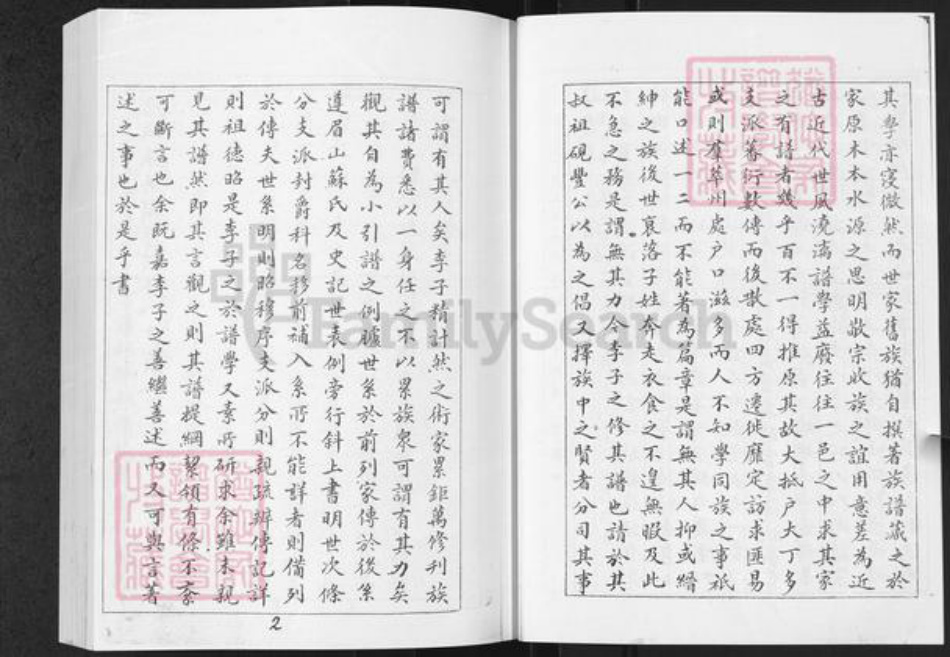 其學亦寖微然而世家舊族猶自撰著族譜藏之於
家原木本水源之思明敬宗收族之誼用意差為近
古近代世風澆漓譜學益廢往往一邑之中求其家
之有譜者幾乎百不一得推原其故大抵戶大丁多
支派蕃衍數傳而後散處四方遷徙靡定訪求匪易
或則羣萃州處戶口滋多而人不知學同族之事祇
能口述一二而不能著為篇章是謂無其人抑或縉
紳之族後世衰落子姓奔走衣食之不遑無暇及此
不急之務是謂無其力今李子之修其譜也請於其
叔祖硯豐公以為之倡又擇族中之賢者分司其事
可謂有其人矣李子精計然之術家累鉅萬修刊族
譜諸費悉以一身任之不以累族衆可謂有其力矣
觀其自為小引譜之例臚世系於前列家傳於後系
遵眉山蘇氏及史記世表例旁行斜上書明世次條
分支派封爵科名移前補入系所不能詳者則備列
於傳夫世系明則昭穆序支派分則親疏辨傳記詳
則祖德昭是李子之於譜學又素所研求余雖未親
見其譜然即其言觀之則其譜提綱挈領有條不紊
可斷言也余既嘉李子之善繼善述而又可與言著
述之事也於是乎書
2
FamilySearch